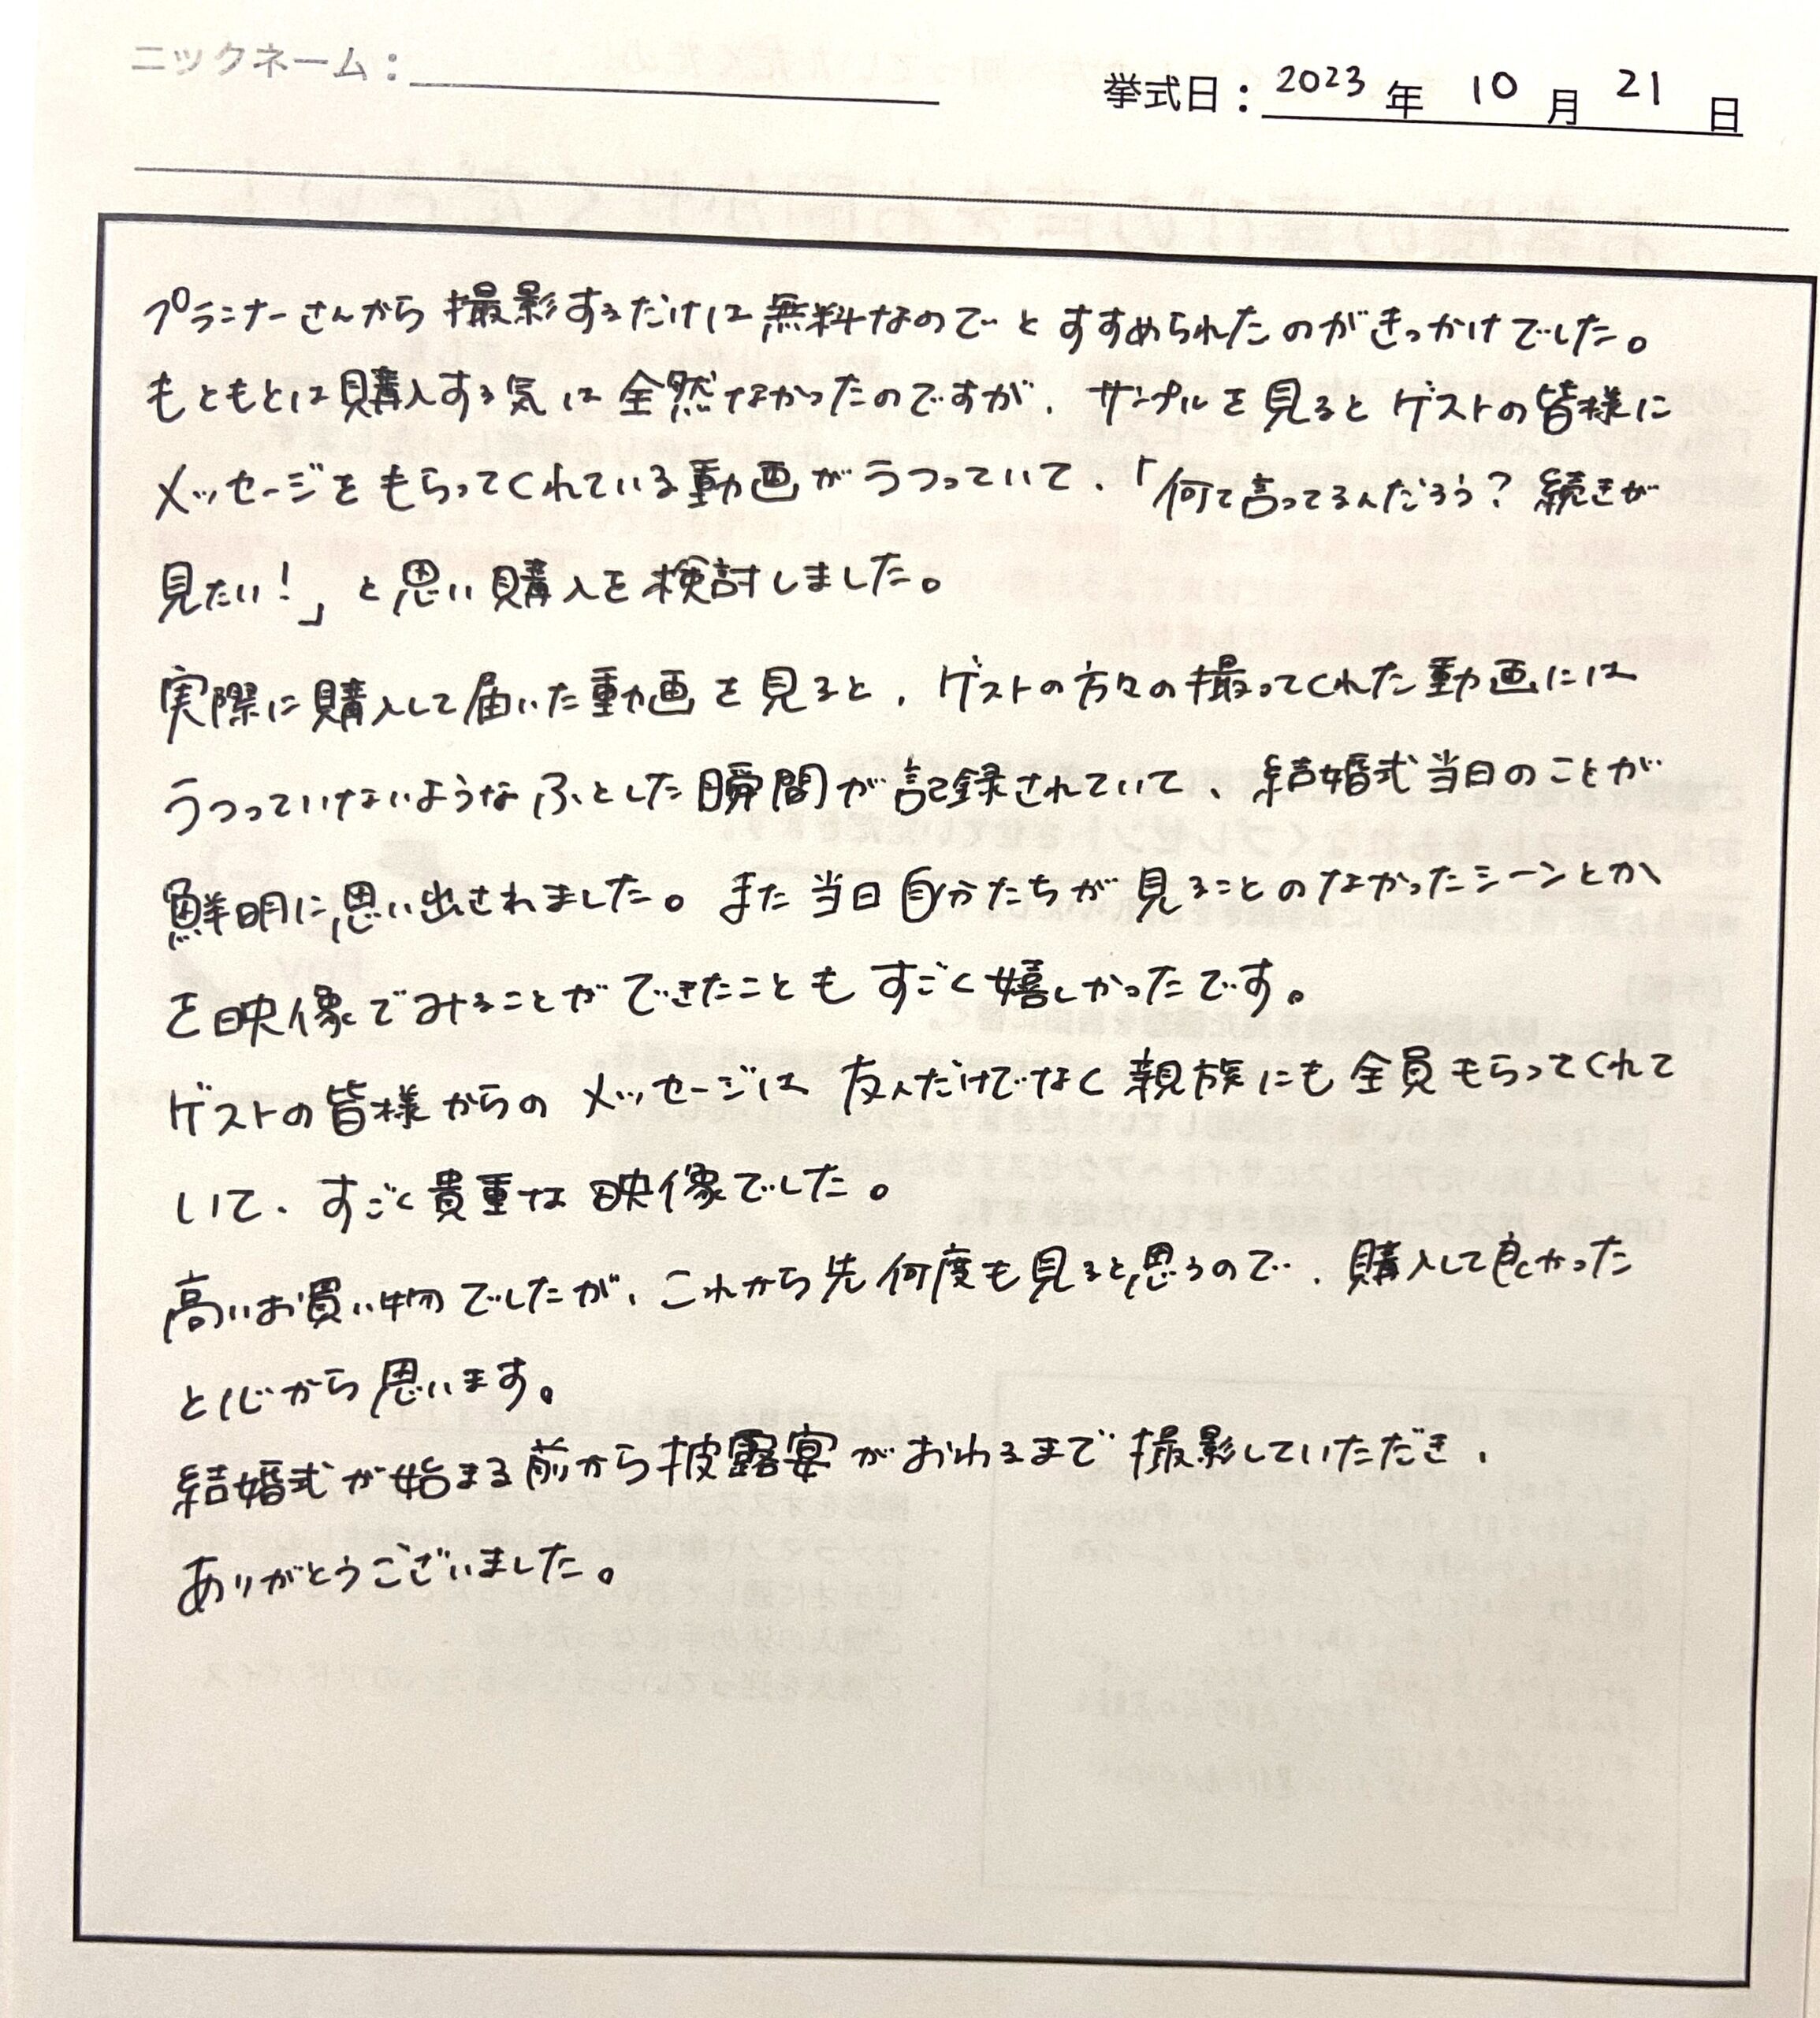 ニックネーム：
挙式日：2023年 10月 21日
プランナーさんから撮影するだけは無料なのでとすすめられたのがきっかけでした。
もともとは購入する気は全然なかったのですが、サンプルを見るとゲストの皆様に
メッセージをもらってくれている動画がうつっていて、「何て言ってるんだろう？続きが
見たい！」と思い購入を検討しました。
実際に購入して届いた動画を見ると、ゲストの方々の撮ってくれた動画には
うつっていないようなふとした瞬間が記録されていて、結婚式当日のことが
鮮明に思い出されました。また当日自分たちが見ることのなかったシーンとか
を映像でみることができたこともすごく嬉しかったです。
ゲストの皆様からのメッセージは友人だけでなく親族にも全員もらってくれて
いて、すごく貴重な映像でした。
高いお買い物でしたが、これから先何度も見ると思うので、購入して良かった
と心から思います。
結婚式が始まる前から披露宴がおわるまで撮影していただき、
ありがとうございました。